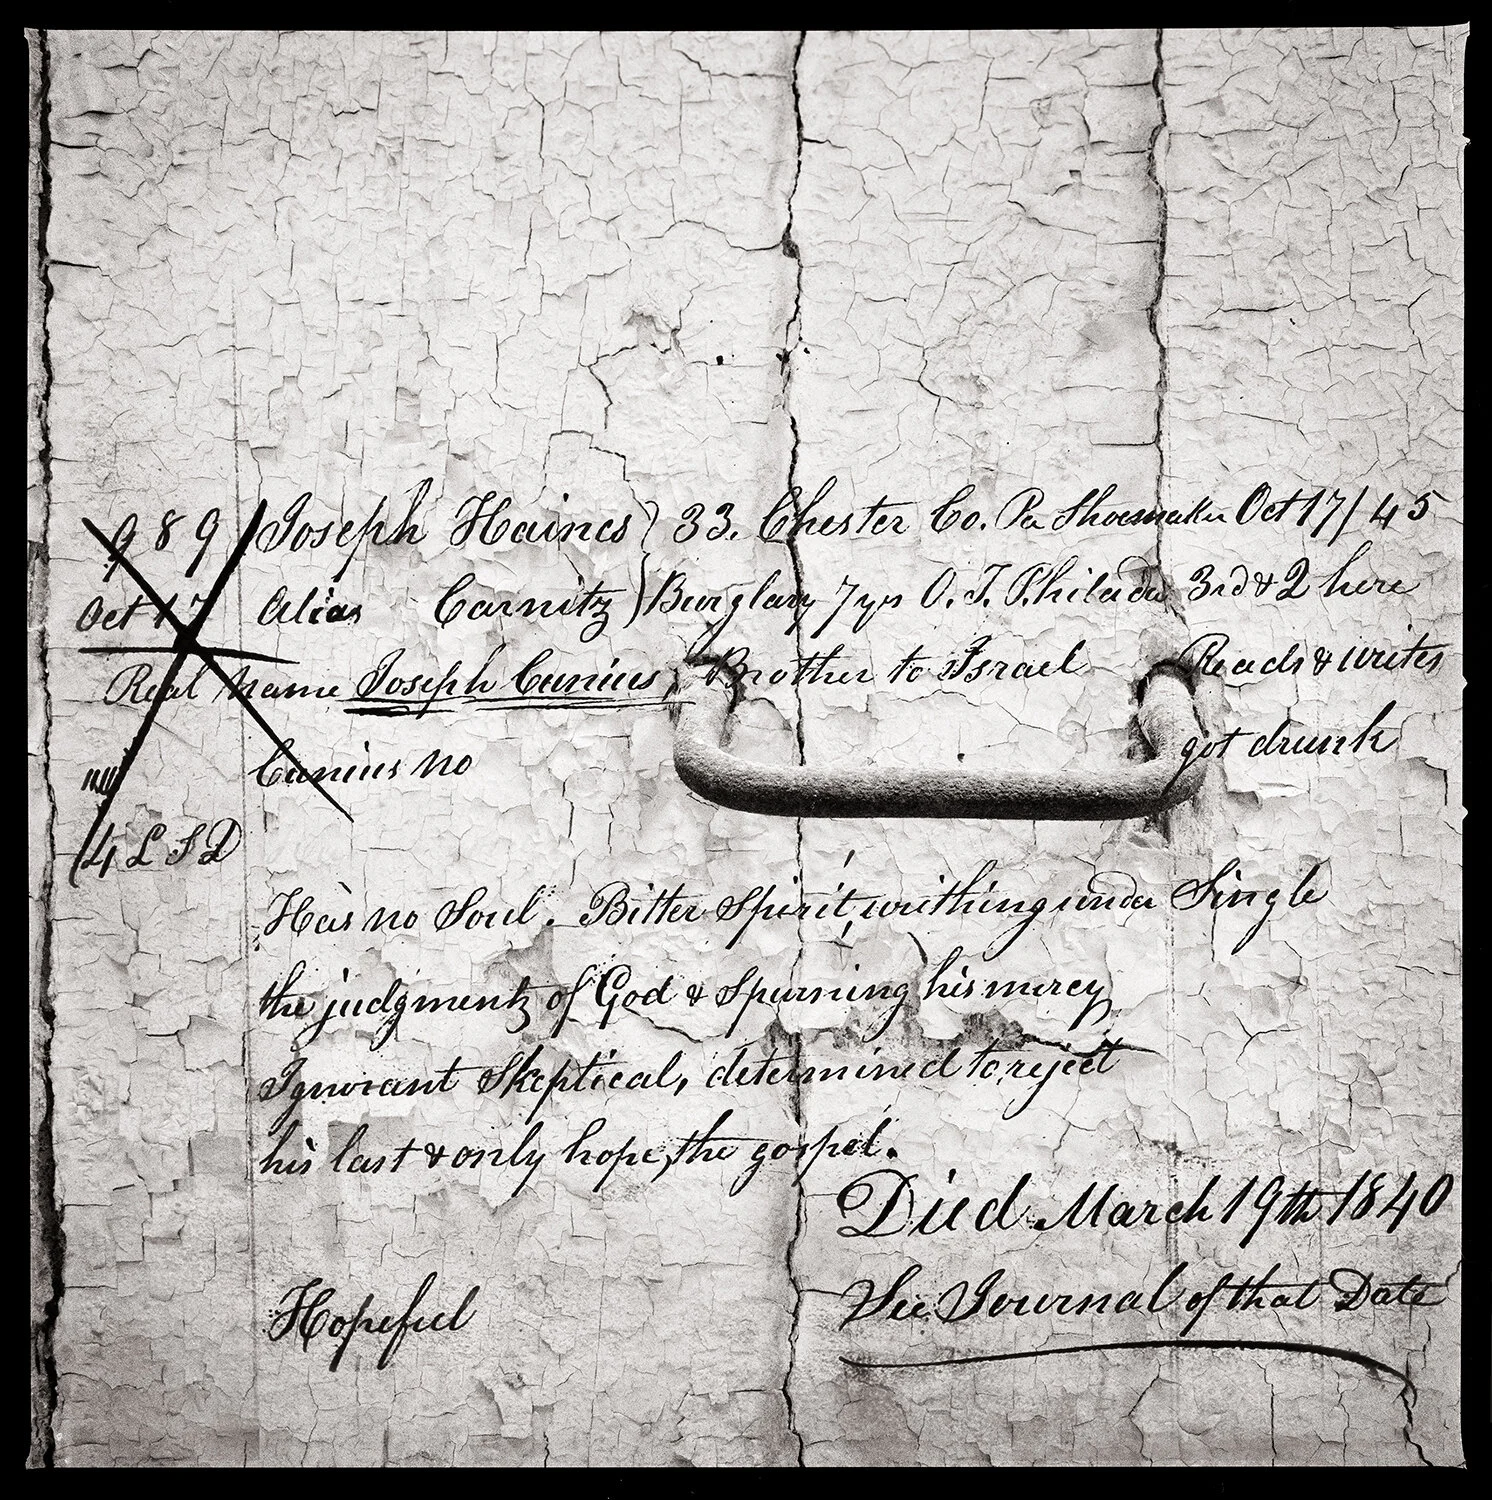 989 Joseph Haines } 33. Chester Co. Pa Shoemaker Oct 17/45
Oct 17 Alias Carnitz } Burglary 7 yrs O. T. Philada 3rd & 2 here
Real Name Joseph Cunius, Brother to Israel Reads & writes
Cunius no got drunk
4 L S D
Has no Soul. Bitter Spirit, writhing under Single
the judgments of God & Spurning his mercy
Ignorant Skeptical, determined to reject
his last & only hope, the gospel.
Died March 19th 1840
Hopeful See Journal of that Date